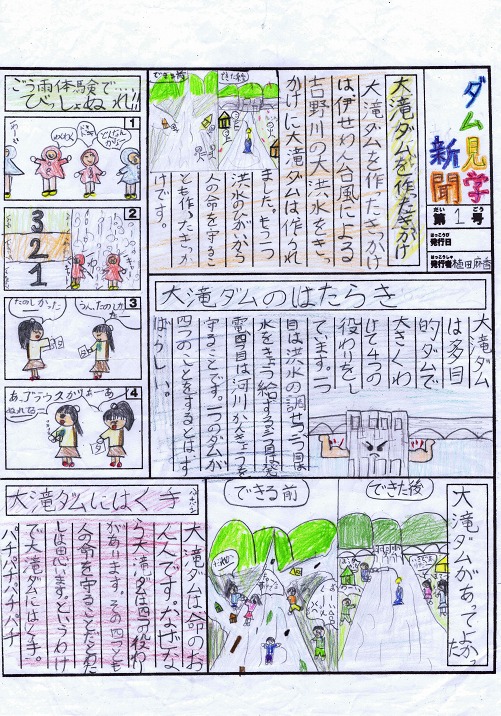 ダム見学新聞
第1号
だい
ごう
はっこうび
発行日
はっこうしゃ
発行者 植田麻香
大滝ダムを作ったきっかけ
大滝ダムを作ったきかけ
は、伊せわん台風による
吉野川の大洪水をきっ
かけに大滝ダムは作られ
ました。もう一つ
洪水のひがいから
人の命を守るこ
とも作ったきっか
けです。
できる前
できた後
ごう雨体験で…
びっしょぬれ!!
1
2
3
2
1
3
たのしかった
うん、たのしかった
4
大滝ダムのはたらき
大滝ダム
は多目
的ダムで
大きくわ
けて4つの
役わりをし
ています。一つ
目は洪水の調せつ二つ目は
水をきょう給する三つ目は発
電四つ目は河川かんきょうを
守ることです。一つのダムが
四つのことをするとはす
ばらしい。
大滝ダムがあってよかった
できる前
できた後
大滝ダムにはく手
パチパチ
大滝ダムは命のお
んんです。なぜな
ら大滝ダムは四つの役わり
があります。その四つとも
人の命を守ることだとわた
しは思います。というわけ
で大滝ダムにはく手。
パチパチパチパチ